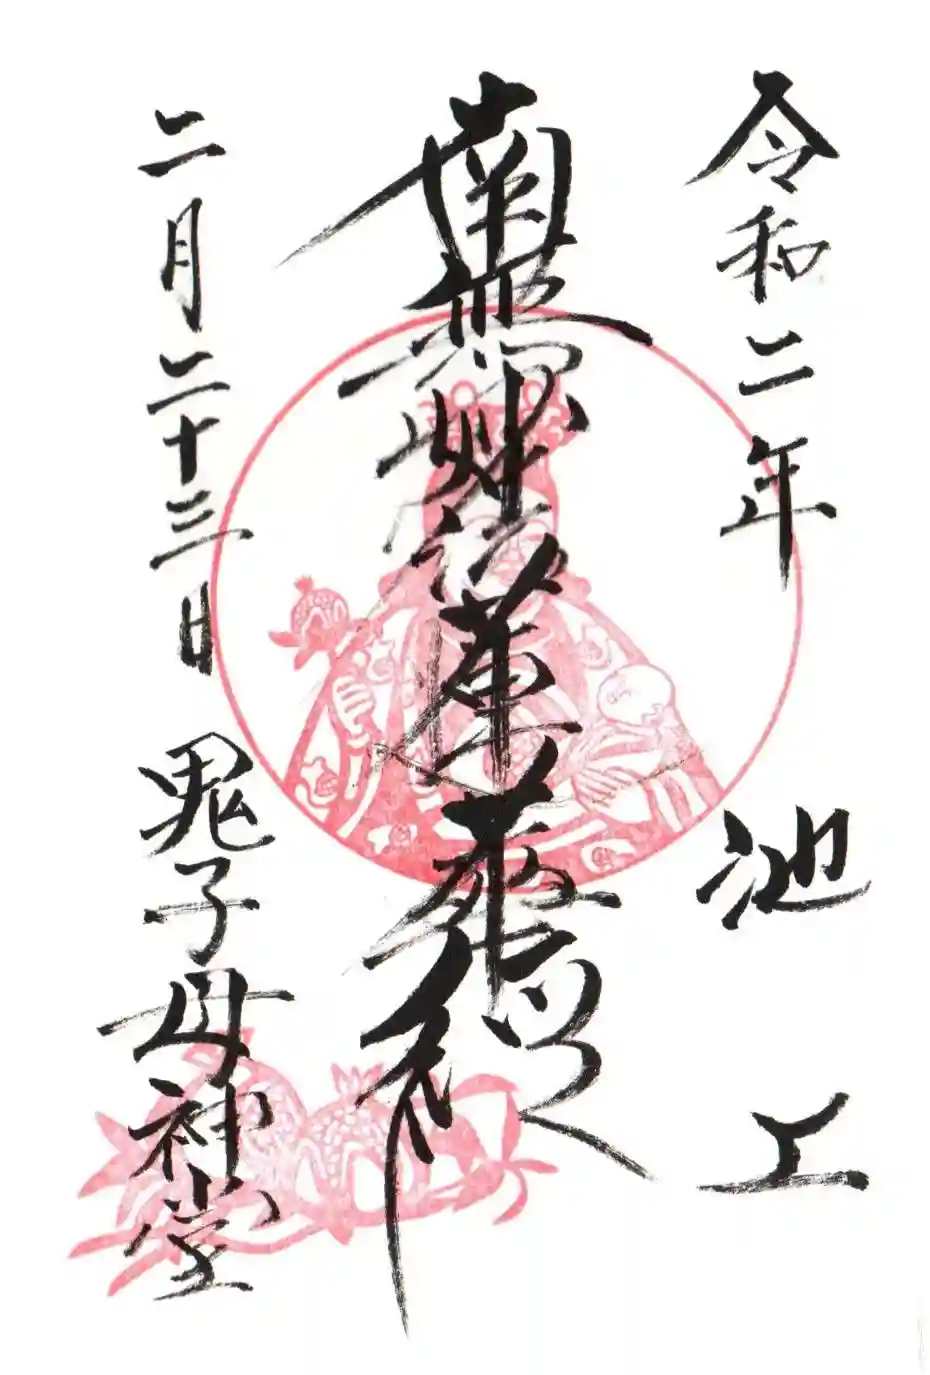 令和二年 池上
南無妙法蓮華経
二月二十三日 鬼子母神堂